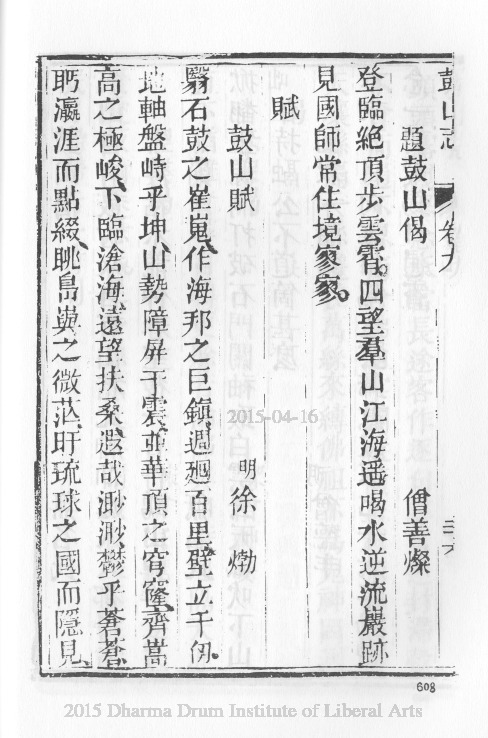 鼓山志 卷九
題鼓山偈 僧善燦
登臨絕頂步雲霄。四望羣山江海遥。喝水逆流巖跡
見國師常住境寥寥。
賦
鼓山賦 明徐𤊹
繄石鼓之崔嵬、作海邦之巨鎮、週廻百里、壁立千仞。
地軸盤峙乎坤、山勢障屏于震、並華頂之穹窿、齊嵩
高之極峻、下臨滄海、遠望扶桑、遐哉渺渺、鬱乎蒼蒼、
眄瀛涯而點綴、眺島嶼之微茫、盱琉球之國而隱見、
608
2015-04-16
2015 Dharma Drum Institute of Liberal Arts